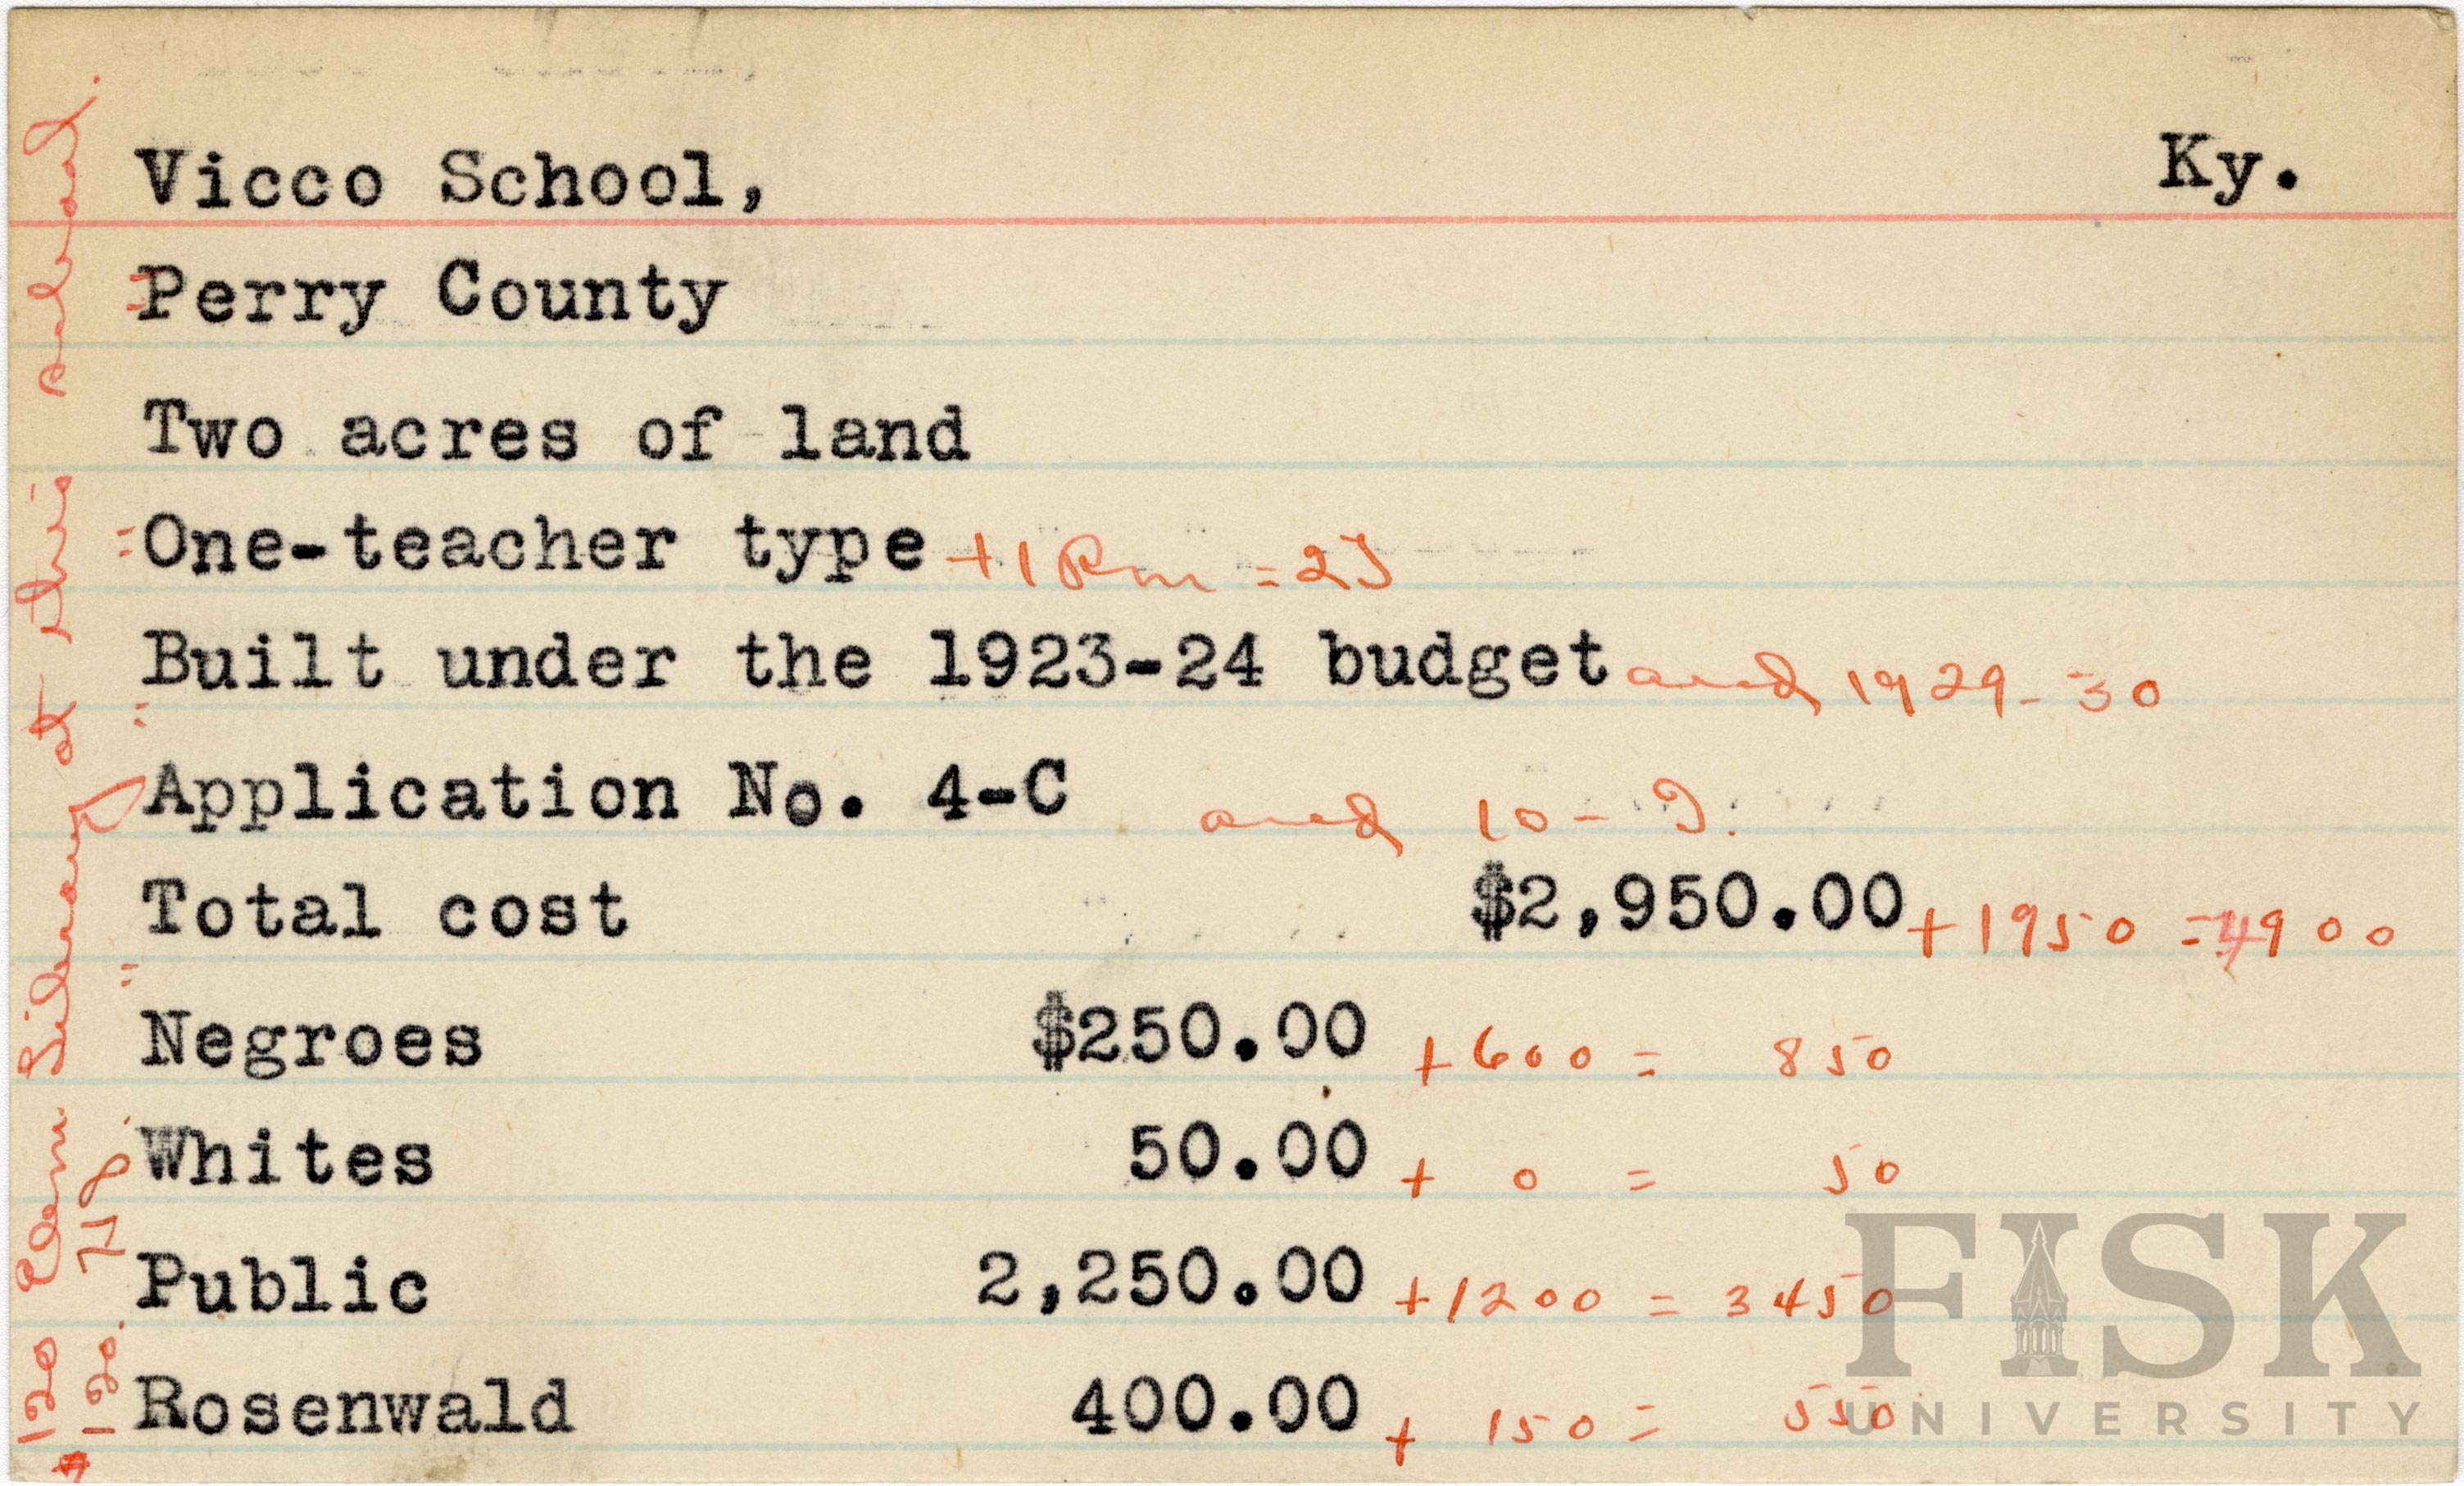 Vicco School, Ky.
Perry County
Two acres of land
One-teacher type +1 Rm = 2T
Built under the 1923-24 budget and 1929-30
Application No. 4-C and 10-J.
Total cost $2,950.00 + 1950 = 4900
Negroes $250.00 + 600 = 850
Whites 50.00 + 0 = 50
Public 2,250.00 + 1200 = 3450
Rosenwald 400.00 + 150 = 550
$120 Elem Library at this school.
120.
FISK
UNIVERSITY